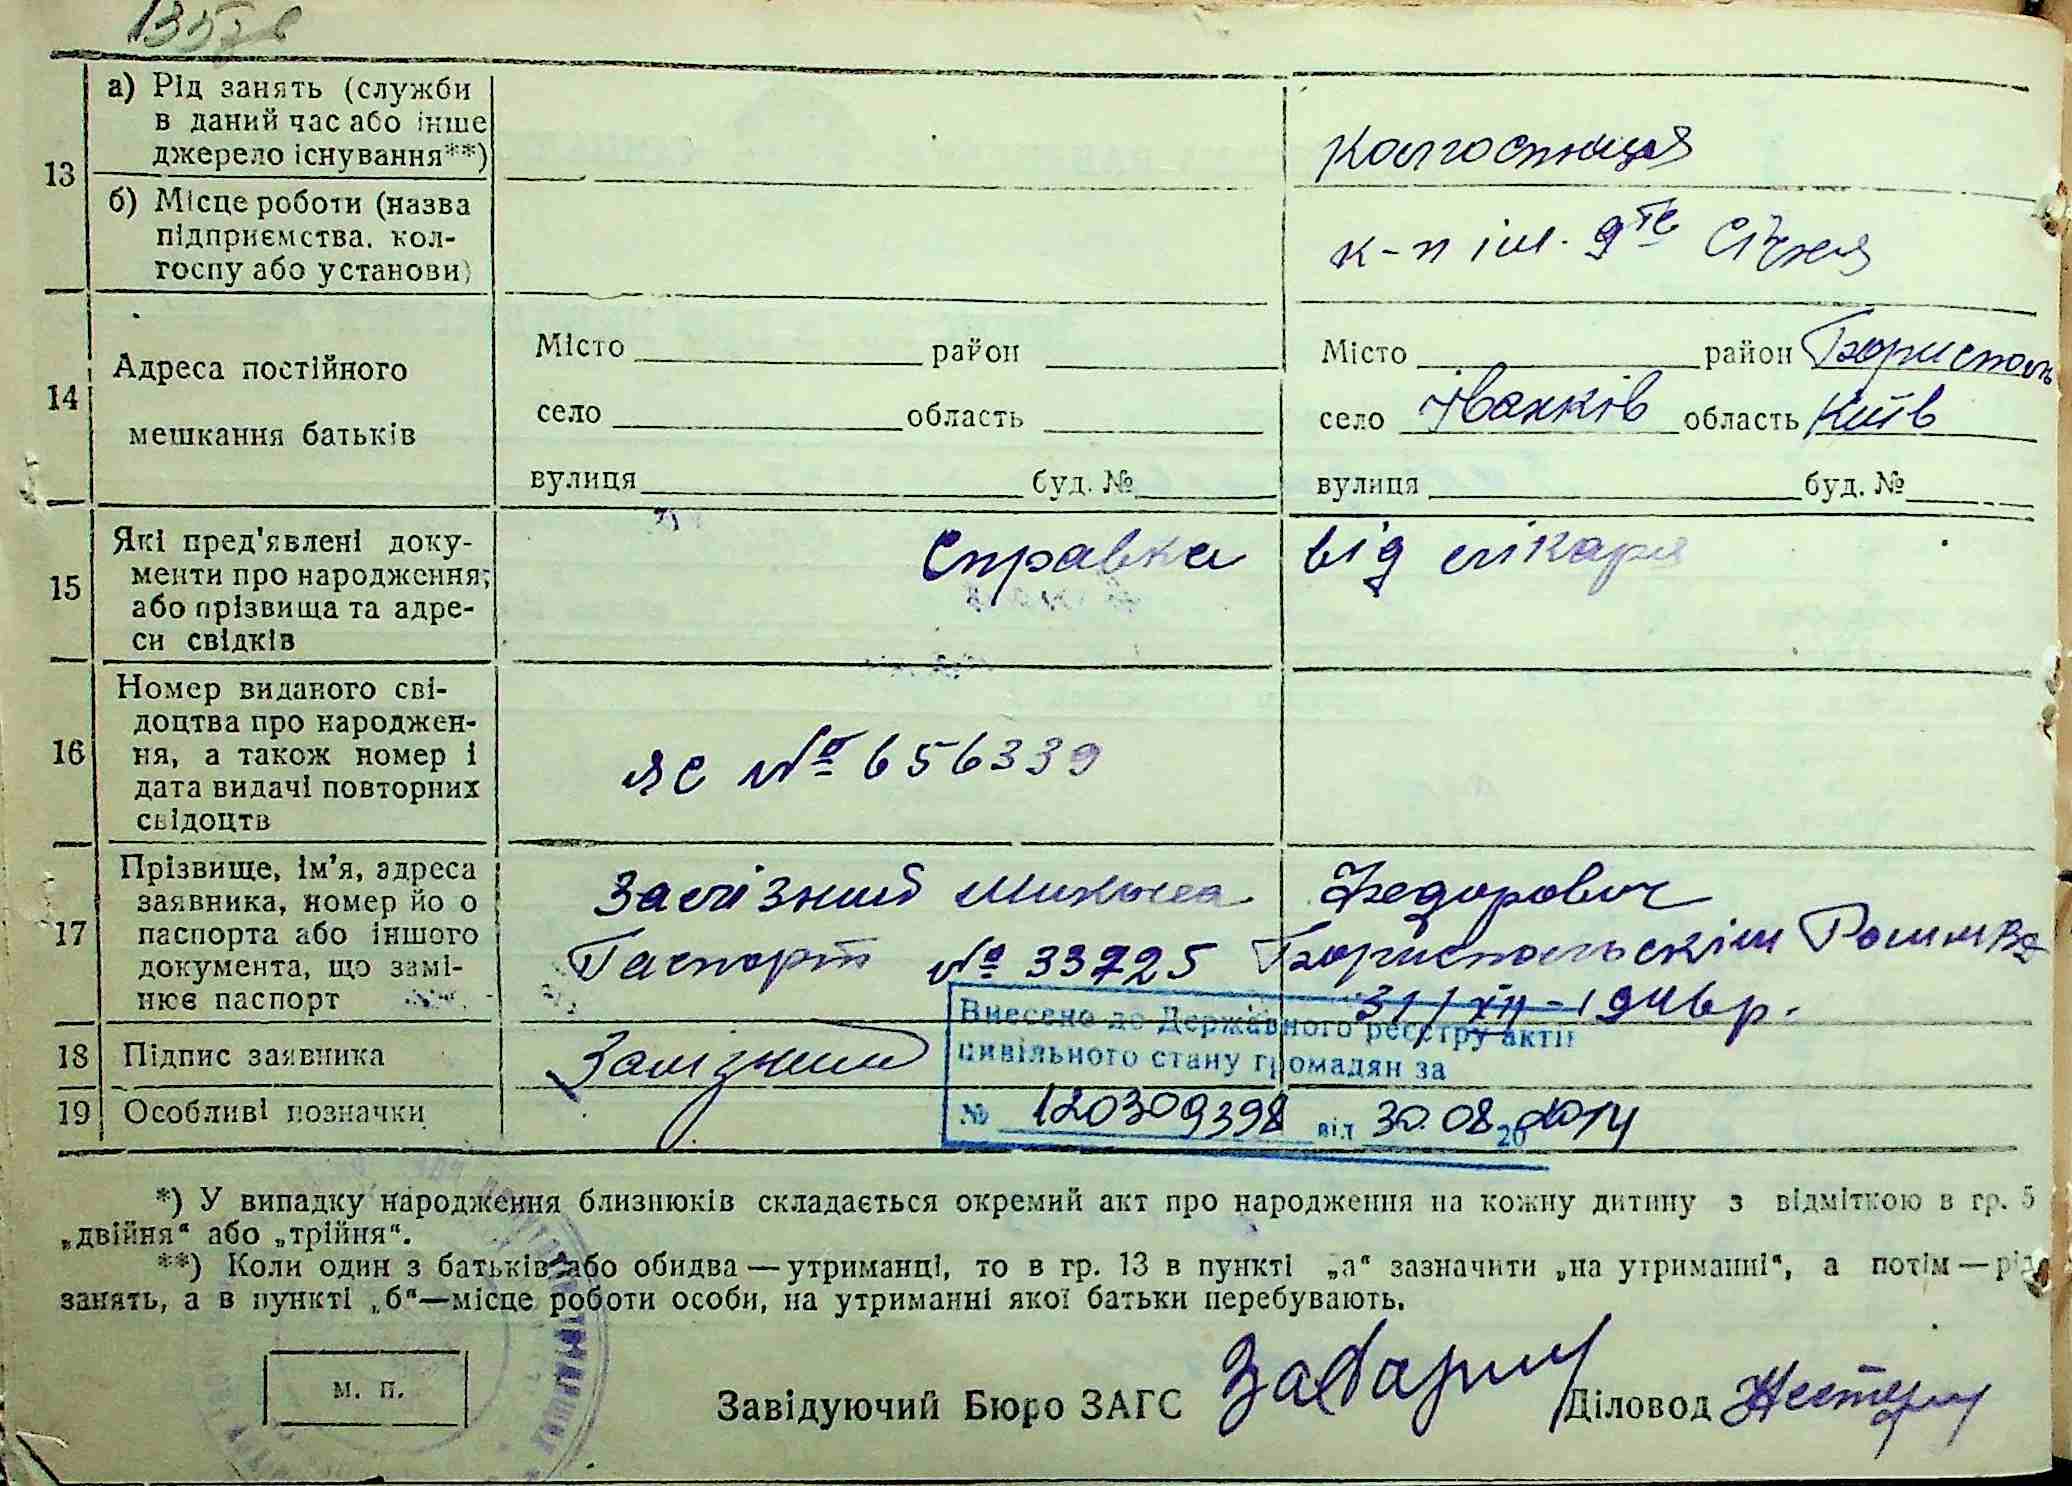 13576
13
а) Рід занять (служби
в даний час або інше
джерело існування**)
колгоспниця
б) Місце роботи (назва
підприємства, кол-
госпу або установи)
к-п ім. 9го Січня
14
Адреса постійного
мешкання батьків
Місто район
село область
вулиця буд. №
Місто район Бориспол
село Іванків область Київ
вулиця буд. №
15
Які пред'явлені доку-
менти про народження;
або прізвища та адре-
си свідків
Справка від лікаря
16
Номер виданого сві-
доцтва про народжен-
ня, а також номер і
дата видачі повторних
свідоцтв
ЯС № 656339
17
Прізвище, ім'я, адреса
заявника, номер йо о
паспорта або іншого
документа, що замі-
нює паспорт
Залізний Микола Федорович
Паспорт № 33725 Бориспольскім
31/XII-1946р.
18 Підпис заявника Залізний
19 Особливі позначки
Внесено до Державного реєстру актів
цивільного стану громадян за
№ 120309398 від 30.08.20 2014
*) У випадку народження близнюків складається окремий акт про народження на кожну дитину з відміткою в гр. 5
„двійня“ або „трійня“.
**) Коли один з батьків або обидва — утриманці, то в гр. 13 в пункті „а“ зазначити „на утриманні“, а потім — рід
занять, а в пункті „б“—місце роботи особи, на утриманні якої батьки перебувають.
м. п.
Завідуючий Бюро ЗАГС Діловод